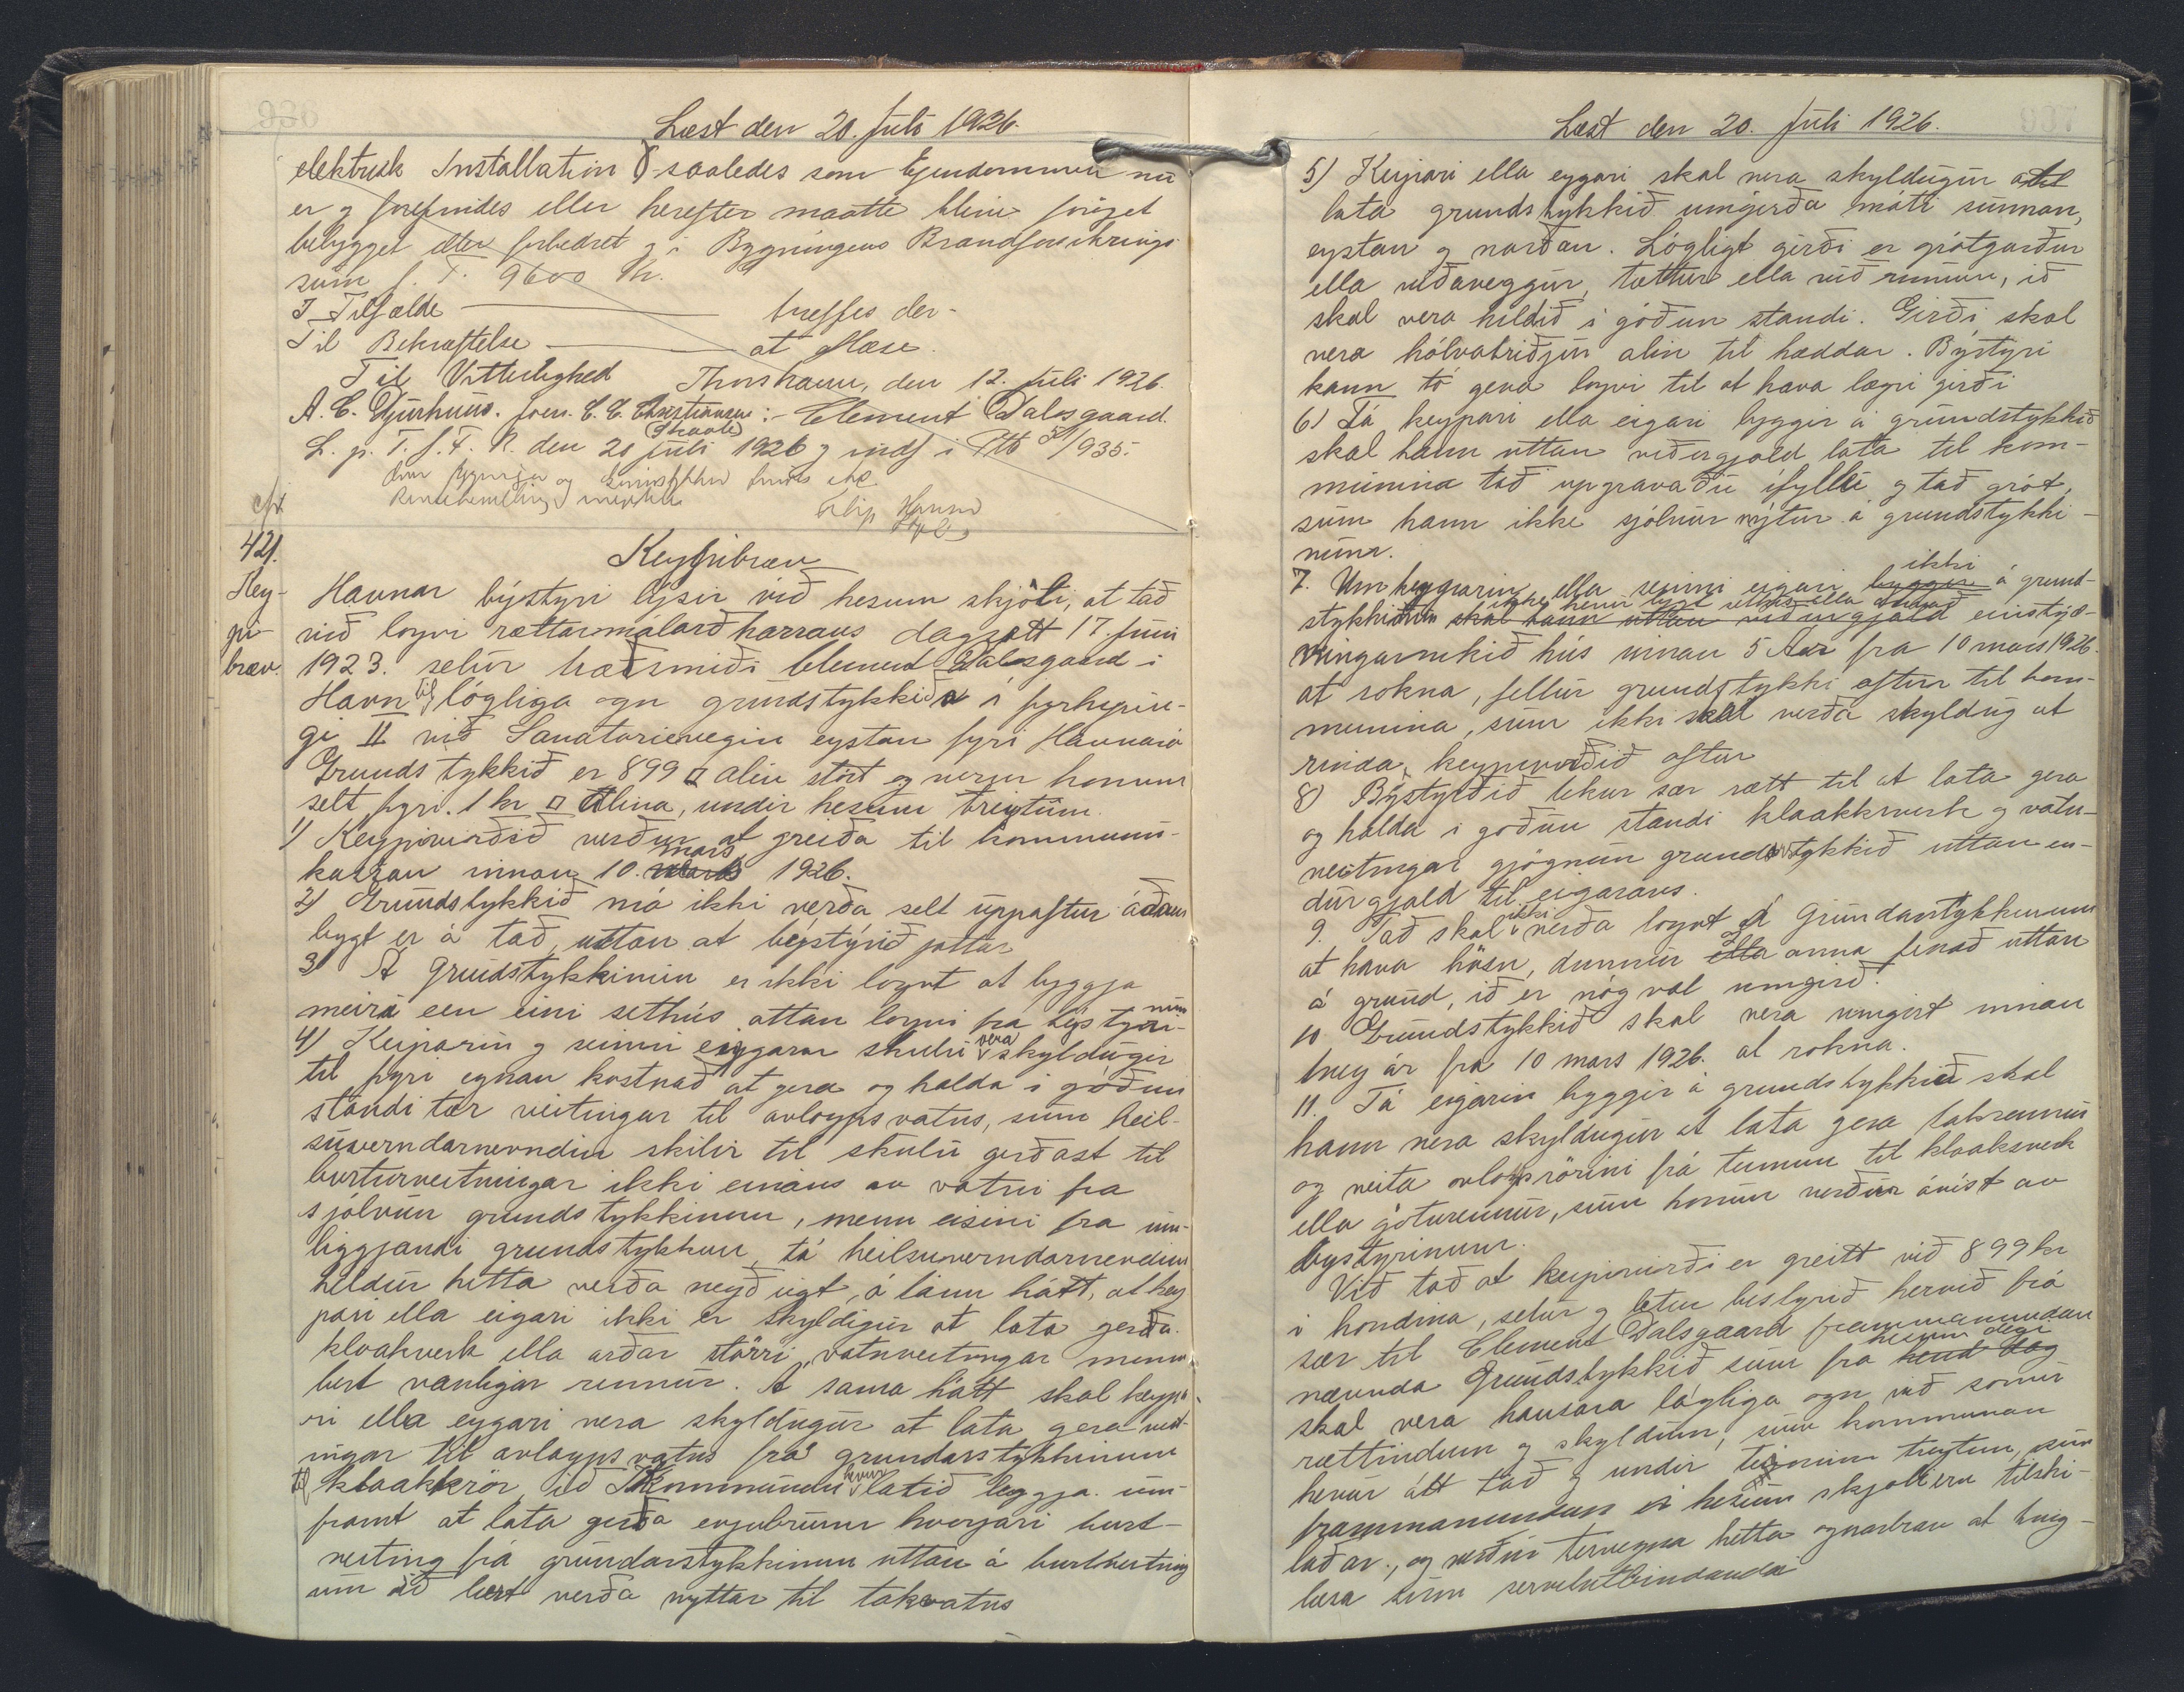 Læst den 20. Juli 1926.
elektrisk Installation saaledes som Ejendommen nu
er og forefindes eller herefter maatte blive foröget
bebygget eller forbedret og i Bygningens Brandforsikrings
sum f. T. 9600 Kr.
I Tilfælde — træffes der-
Til Bekræftelse — at læse.
Til Vitterlighed Thorshavn, den 12. Juli 1926.
A. C. Djurhuus. Joen. C. C. Christiansen :- Clement Dalsgaard.
(Skaale)
L. p. T. f. F. R. den 20 Juli 1926 og indf i Ptb 935.
421.
Keypibræv
Key-
pi-
bræv.
Havnar býstyri lýsir við hesum skjöli, at tað
við loyvi rættarmálaráðharrans dagsett 17 Juni
1923. selur træsmiði Clement Dalsgaard i
Havn til lógliga ogn grundstykkið á fyrhepin-
gi II við Sanatorievegin eystan fyri Havnará
Grundstykkið er 899 □ alin stórt og verður honum
selt fyri. 1 kr □ Alina, undir hesum treytum.
1) Keypsvirðið verður at greiða til kommunu-
kassan innan 10. mars 1926.
2) Grundstykkið má ikki verða selt uppaftur áðrenn
bygt er á tað, uttan at býstýrið játtar
3 Á grundstykkinum er ikki loyvt at byggja
meira een eini sethús uttan loyvi fra býstyri-
num
4) Keiparin og seinni eygarar skulu vera skyldugir
til fyri egnan kostnað at gera og halda i góðum
standi tær veitingar til avloypsvatns, sum heil-
suverndarnevndin skilir til skulu gerðast til
burturveitningar ikki einans av vatni fra
sjálvum grundstykkinum, menn eisini fra um-
liggjandi grundstykkum, tá heilsuverndarnevndin
heldur hetta verða neyðugt, á tann hátt, at key
pari ella eigari ikki er skyldigur at lata gerða
kloakverk ella aðrar störri vatnveitingar menn
bert vanligar rennur. Á sama hátt skal keypa-
ri ella eygari vera skyldugur at lata gera veit-
ingar til avloypsvatns frá grundarstykkinum
til klaakkrör, ið kommunan hevur latið leggja. um-
framt at lata gerða evjubrunn hvørjari burt-
veiting frá grundarstykkinum uttan á burtveiting
um ið bert verða nyttar til takvatns
Læst den 20. Juli 1926.
5) Keypari ella eygari skal vera skyldugur at
lata grundstykkið umgerða móti sunnan,
eystan og norðan. Lógligt girði er grótgarður
ella viðaveggur, tættur ella við rimum, ið
skal vera hildið i góðum standi. Girði skal
vera hólvatriðjun alin til hæddar. Býstyri
kann tó geva loyvi til at hava lægri girði
6) Tá keypari ella eigari byggir á grundstykkið
skal hann uttan viðurgjald lata til kom-
mununa tað upgravaðu ífylli og tað grót,
sum hann ikke sjólvur nýtur á grundstykki-
num.
7. Um keyparin ella seinni eigari ikki byggir á grund-
stykkinum skal hann uttan viðurgjald einstøk
innan 5 Aar fra 10 mars 1926.
at rokna, fellur grundstykki aftur til kom-
mununa, sum ikki skal verða skyldug at
rinda keypsvirðið aftur
8) Býstyrið tekur sær rætt til at lata gera
og halda i goðum standi klaakkverk og vatn-
veitingar gjögnum grundstykkið uttan en-
durgjald til eigarans.
9. Tað skal ikki verða loyvt á Grundarstykkinum
at hava høsn, dunnur og anna fenað uttan
á grund, ið er nóg val umgird.
10 Grundstykkið skal vera umgirt innan
trey ár frá 10 mars 1926. at rokna.
11. Tá eigarin byggir á grundstykkið skal
hann vera skyldugur at lata gera takrennur
og veita avloypsrörini frá tunum til klaaksverk
ella góturennur, sum honum verður ávist av
bystyrinum.
Við tað at keypsvirði er greitt við 899 kr
i hondina, selur og letur bestyrið hervið frá
sær til Clement Dalsgaard frammanundan
nævnda Grundstykkið sum fra hesum degi
skal vera hansara lógliga ogn við somu
rættindum og skyldum, sum kommunan
hevur átt tað og under teimum treytum, sum
frammanundan i hesum skjali eru tilski-
laðar., og verður tervegna hetta ognarbræv at ting-
lesa sum servitutbindanda